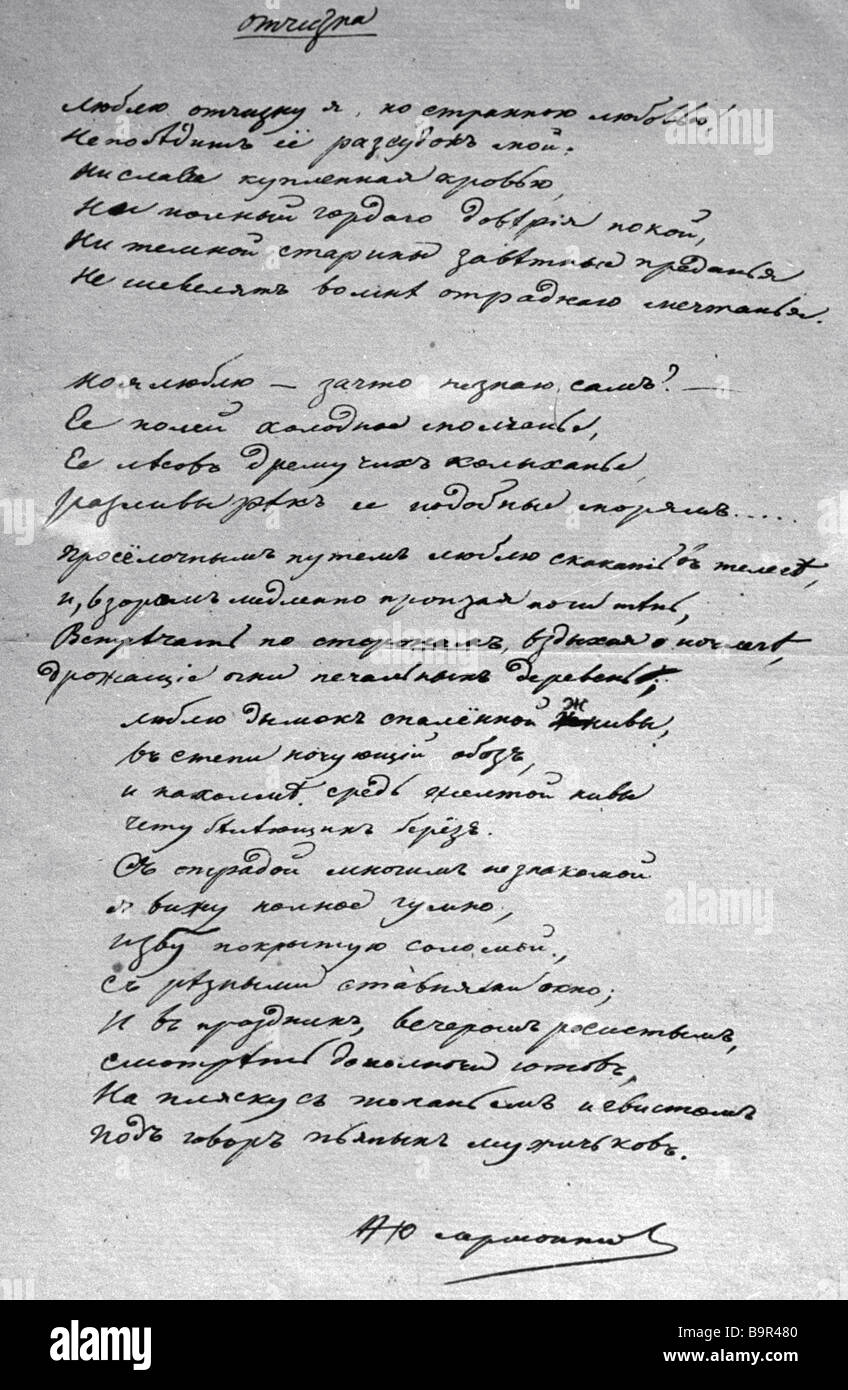 Отчизна
Люблю отчизну я, но странною любовью!
Непобѣдитъ её разсудокъ мой.
Ни слава купленная кровью,
Ни полный гордаго довѣрія покой,
Ни темной старины завѣтные преданья
Не шевелятъ во мнѣ отраднаго мечтанья.
Но я люблю — зачто незнаю самъ? —
Ее полей холодное молчанье,
Ее лѣсовъ дремучихъ колыханье,
разливы рѣкъ ее подобные морямъ.....
просёлочнымъ путемъ люблю скакать въ телегѣ,
и, взоромъ медленно пронзая ночи тѣнь,
Встрѣчать по сторонамъ, вздыхая о ночлегѣ,
дрожащіе огни печальныхъ деревень;
люблю дымокъ спалённой жнивы,
въ степи ночующій обозъ,
и на холмѣ средь желтой нивы
чету бѣлѣющихъ берёзъ.
Съ отрадой многимъ незнакомой
я вижу полное гумно,
избу покрытую соломой,
съ рѣзными ставнями окно;
И въ праздникъ, вечеромъ росистымъ,
смотрѣть до полночи готовъ,
На пляску съ топаньемъ и свистомъ
подъ говоръ пьяныхъ мужичьковъ.
alamy
Image ID: B9R480
www.alamy.com